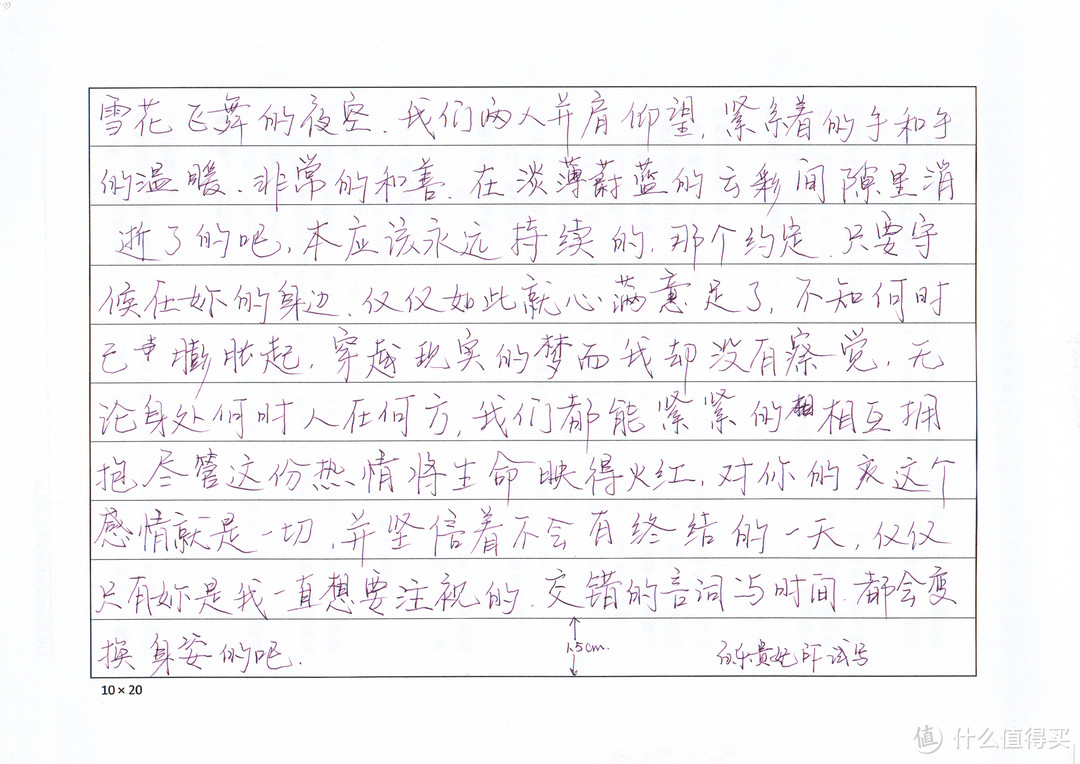 雪花飞舞的夜空.我们两人并肩仰望,紧系着的手和手
的温暖.非常的和善.在淡薄蔚蓝的云彩间隙里消
逝了的吧,本应该永远持续的.那个约定.只要守
候在妳的身边.仅仅如此就心满意足了,不知何时
已膨胀起,穿越现实的梦而我却没有察觉,无
论身处何时人在何方,我们都能紧紧的相互拥
抱.尽管这份热情将生命映得火红,对你的爱这个
感情就是一切,并坚信着不会有终结的一天,仅仅
只有妳是我一直想要注视的.交错的言词与时间.都会变
换身姿的吧.
1.5cm.
试写
10×20
值 什么值得买